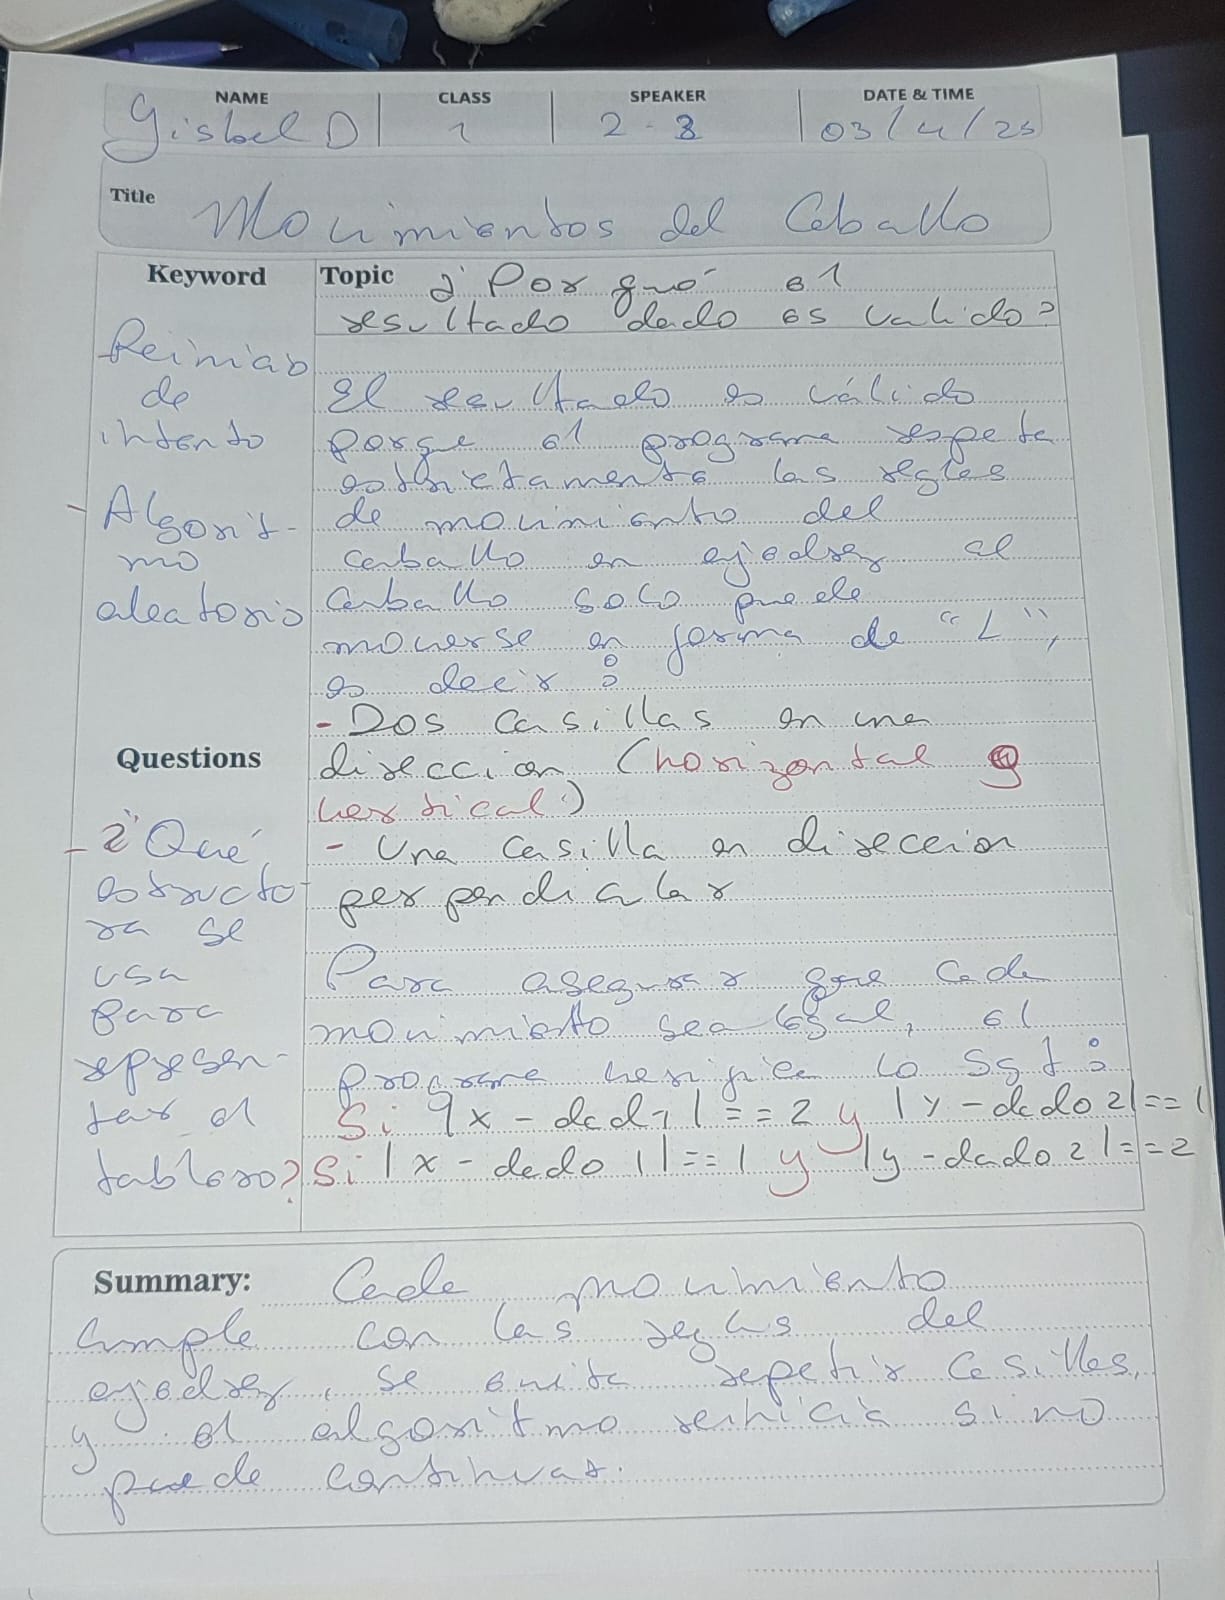 NAME CLASS SPEAKER DATE & TIME
Gisbel D 1 2-3 03/4/25
Title Movimientos del Caballo
Keyword
Reinicio
de
intento
- Algorit-
mo
aleatorio
Questions
- ¿Qué
estructu-
ra se
usa
para
represen-
tar el
tablero?
Topic ¿Por qué el
resultado dado es valido?
El resultado es válido
porque el programa respeta
estrictamente las reglas
de movimiento del
caballo en ajedrez el
caballo solo puede
moverse en forma de "L",
es decir:
- Dos casillas en una
direccion (horizontal o
vertical)
- Una casilla en direccion
perpendicular
Para asegurar que cada
movimiento sea legal, el
programa verifica lo sgt:
Si |x - dado 1| == 2 y |y - dado 2| == 1
Si |x - dado 1| == 1 y |y - dado 2| == 2
Summary: Cada movimiento
cumple con las reglas del
ajedrez, se evita repetir casillas,
y el algoritmo reinicia si no
puede continuar.